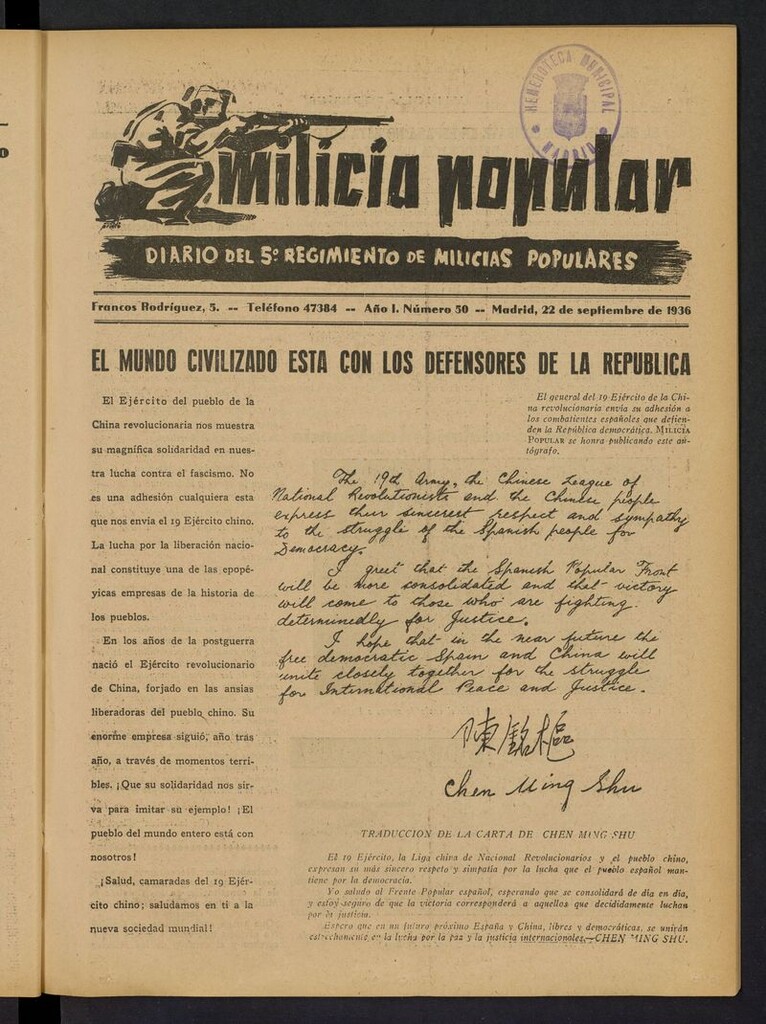 HEMEROTECA MUNICIPAL
MADRID
milicia popular
DIARIO DEL 5º REGIMIENTO DE MILICIAS POPULARES
Francos Rodríguez, 5. -- Teléfono 47384 -- Año I. Número 50 -- Madrid, 22 de septiembre de 1936
EL MUNDO CIVILIZADO ESTA CON LOS DEFENSORES DE LA REPUBLICA
El Ejército del pueblo de la
China revolucionaria nos muestra
su magnífica solidaridad en nues-
tra lucha contra el fascismo. No
es una adhesión cualquiera esta
que nos envía el 19 Ejército chino.
La lucha por la liberación nacio-
nal constituye una de las epopé-
yicas empresas de la historia de
los pueblos.
En los años de la postguerra
nació el Ejército revolucionario
de China, forjado en las ansias
liberadoras del pueblo chino. Su
enorme empresa siguió, año tras
año, a través de momentos terri-
bles. ¡Que su solidaridad nos sir-
va para imitar su ejemplo! ¡El
pueblo del mundo entero está con
nosotros!
¡Salud, camaradas del 19 Ejér-
cito chino; saludamos en ti a la
nueva sociedad mundial!
El general del 19 Ejército de la Chi-
na revolucionaria envía su adhesión a
los combatientes españoles que defien-
den la República democrática. MILICIA
POPULAR se honra publicando este au-
tógrafo.
The 19th Army, the Chinese League of
National Revolutionists and the Chinese people
express their sincerest respect and sympathy
to the struggle of the Spanish people for
Democracy.
I greet that the Spanish Popular Front
will be more consolidated and that victory
will come to those who are fighting
determinedly for Justice.
I hope that in the near future the
free democratic Spain and China will
unite closely together for the struggle
for International Peace and Justice.
陳銘樞
Chen Ming Shu
TRADUCCION DE LA CARTA DE CHEN MING SHU
El 19 Ejército, la Liga china de Nacional Revolucionarios y el pueblo chino,
expresan su más sincero respeto y simpatía por la lucha que el pueblo español man-
tiene por la democracia.
Yo saludo al Frente Popular español, esperando que se consolidará de día en día,
y estoy seguro de que la victoria corresponderá a aquellos que decididamente luchan
por la justicia.
Espero que en un futuro próximo España y China, libres y democráticas, se unirán
estrechamente en la lucha por la paz y la justicia internacionales.—CHEN MING SHU.